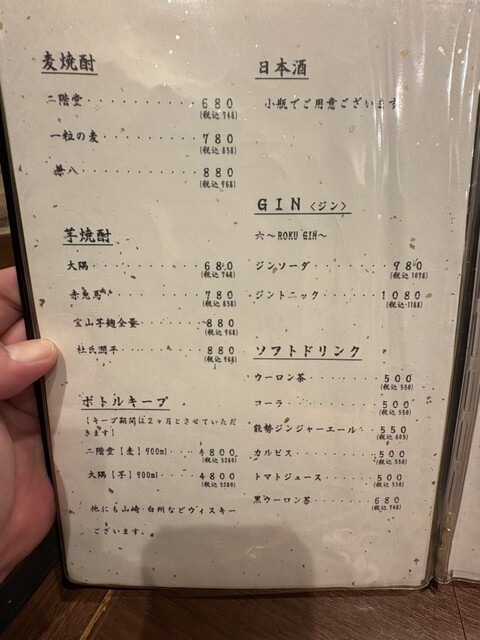 麦焼酎
二階堂・・・・・・・・・・・680
(税込748)
一粒の麦・・・・・・・・・・780
(税込858)
兼八・・・・・・・・・・・・880
(税込968)
芋焼酎
大隅・・・・・・・・・・・・680
(税込748)
赤兎馬・・・・・・・・・・・780
(税込858)
宝山芋麹全量・・・・・・・・880
(税込968)
杜氏潤平・・・・・・・・・・880
(税込968)
ボトルキープ
【キープ期間は2ヶ月とさせていただ
きます】
二階堂【麦】900ml・・4800
(税込5280)
大隅【芋】900ml・・・4800
(税込5280)
他にも山崎・白州などウィスキー
ございます。
日本酒
小瓶でご用意ございます
GIN〈ジン〉
六〜ROKU GIN〜
ジンソーダ・・・・・・・・980
(税込1078)
ジントニック・・・・・・・1080
(税込1188)
ソフトドリンク
ウーロン茶・・・・・・・・500
(税込550)
コーラ・・・・・・・・・・500
(税込550)
能勢ジンジャーエール・・・550
(税込605)
カルピス・・・・・・・・・500
(税込550)
トマトジュース・・・・・・500
(税込550)
黒ウーロン茶・・・・・・・680
(税込748)